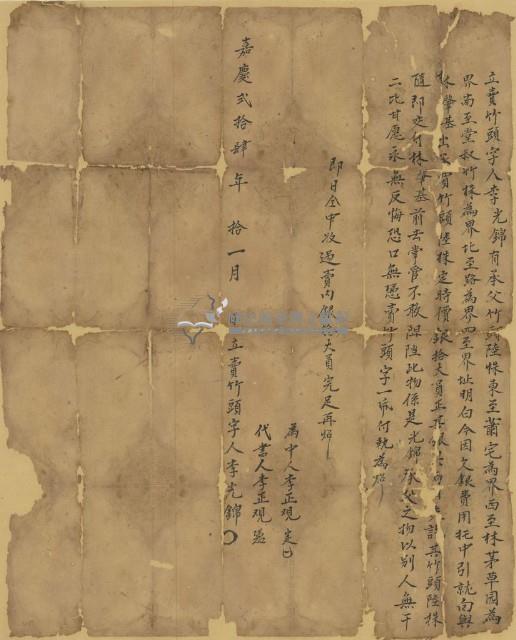 立賣竹頭字人李光錦有承父竹頭陸株東至蕭宅為界西至林茅草園為
界南至堂叔竹株為界北至路為界四至界址明白今因欠銀費用托中引就向與
林肇基出 賣竹頭陸株定時價銀拾大員正其銀 其竹頭陸株
隨即交付林肇基前去掌管不敢阻 此物係是光錦承父之物以別人無干
二比甘愿永無反悔恐口無憑賣竹頭字一紙付執為炤
即日仝中收過賣內銀拾大員完足再炤
為中人李正观
代書人李正观
嘉慶貳拾肆年拾一月 日立賣竹頭字人李光錦